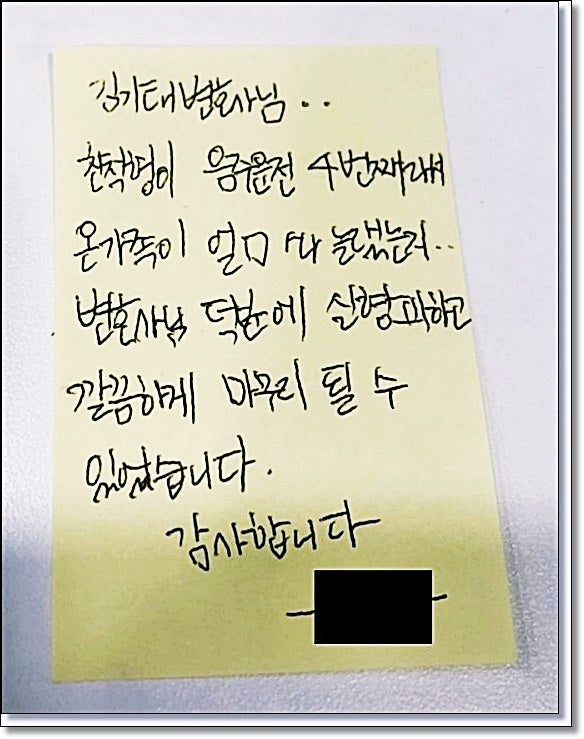 김기태변호사님..
찬착명이 음주운전 4번째래서
온가족이 얼마나 놀랬는지..
변호사님 덕분에 실형피하고
깔끔하게 마무리 될 수
있었습니다.
감사합니다